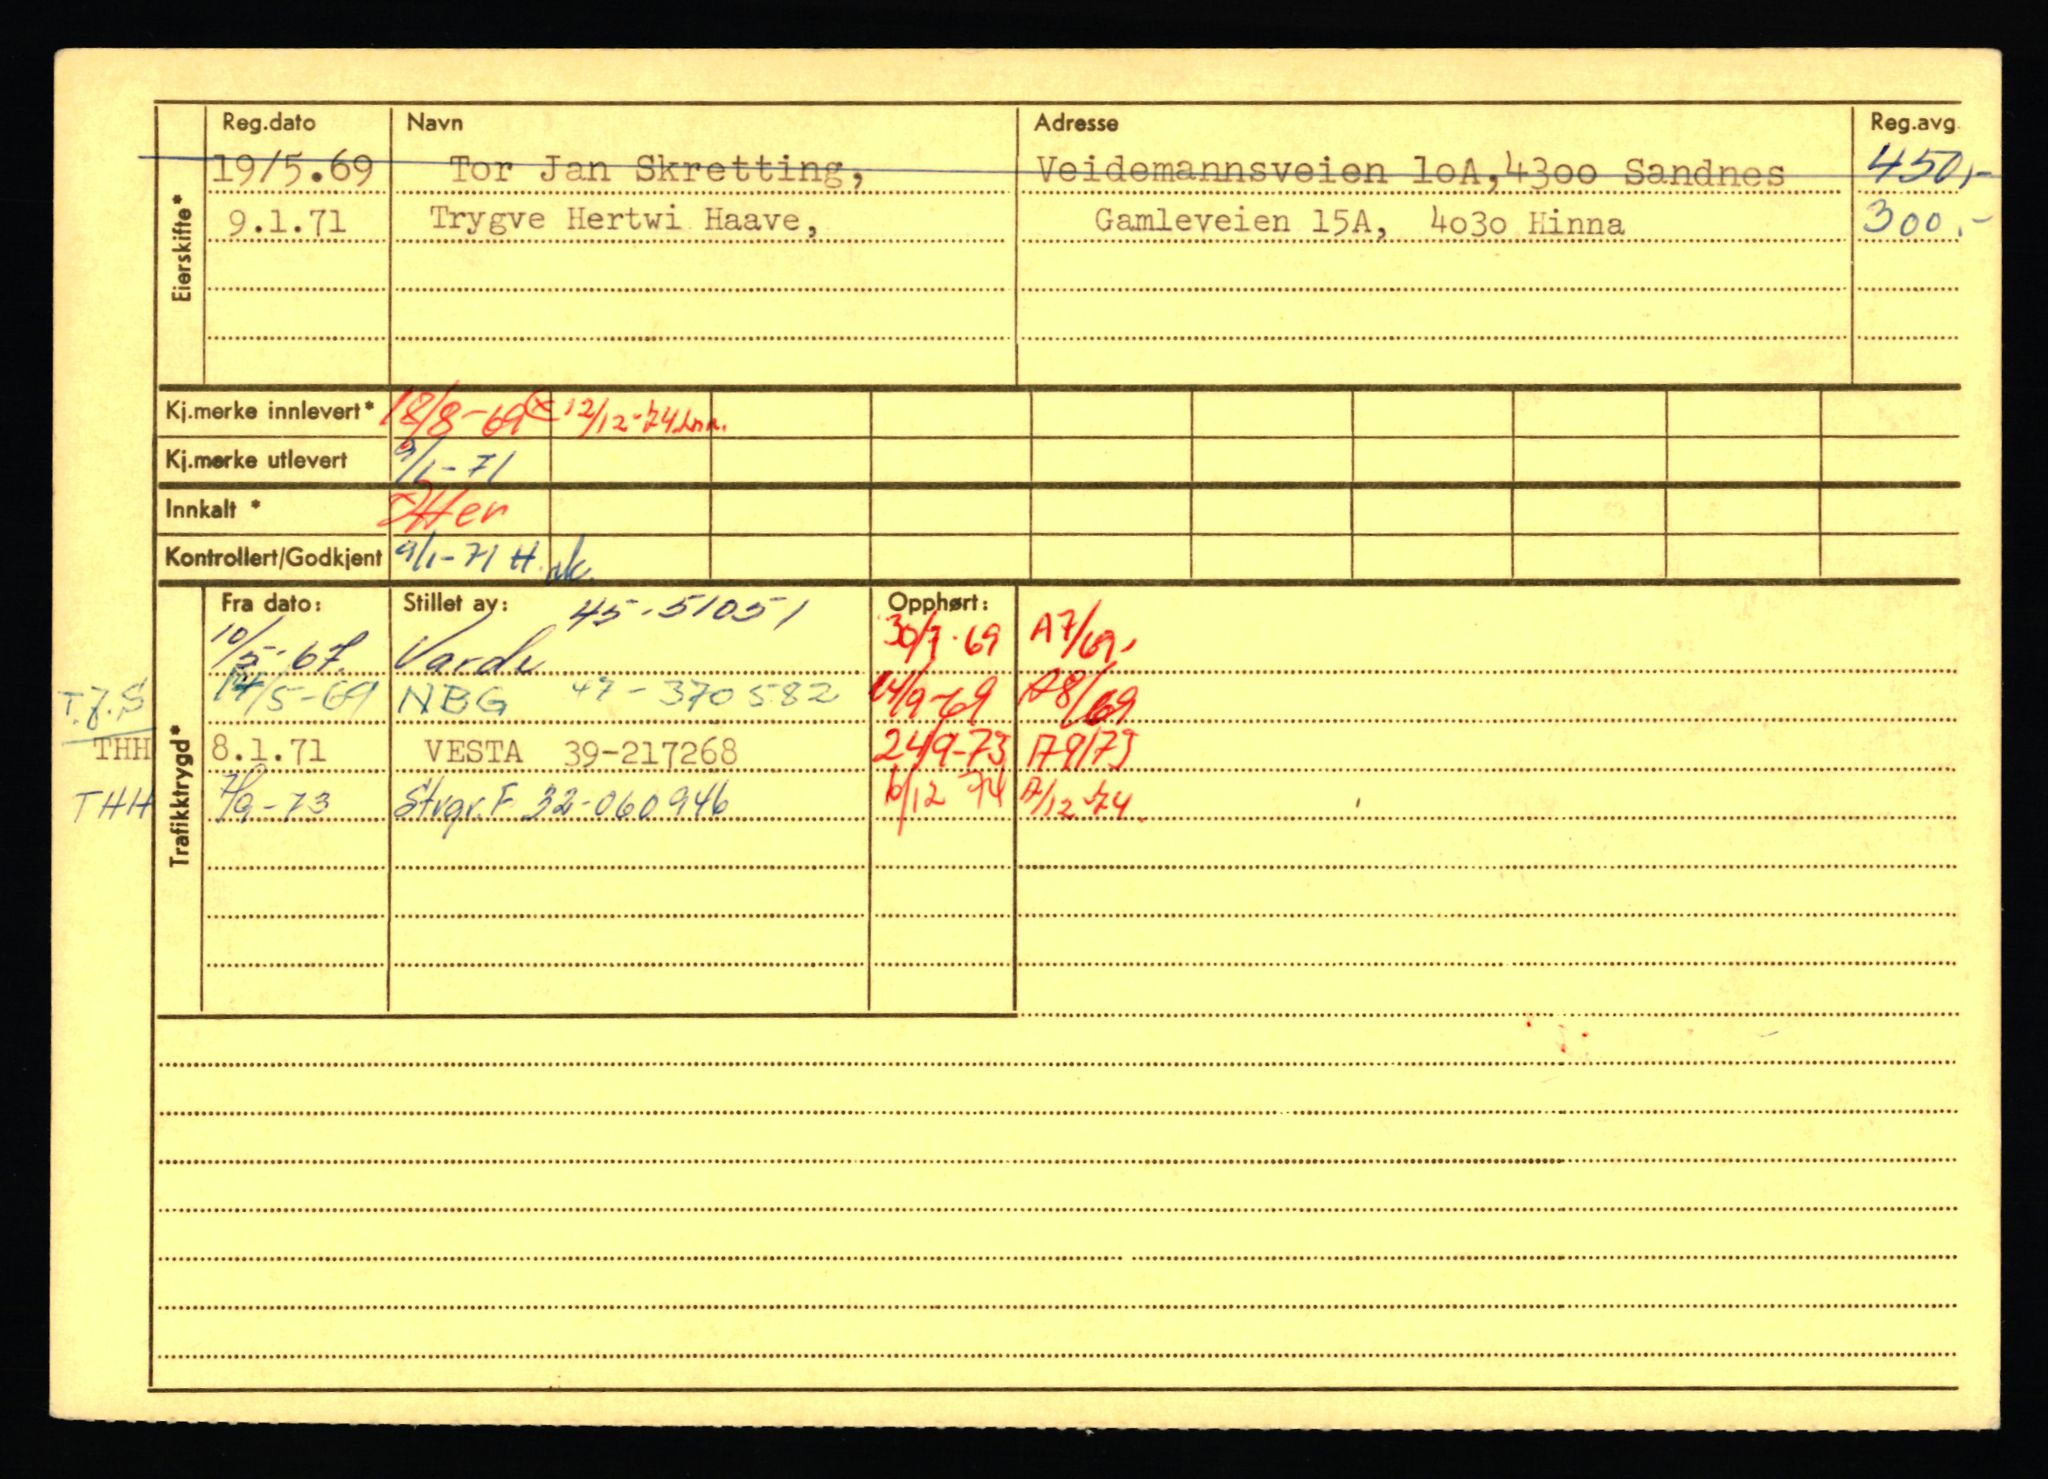 Reg.dato Navn Adresse Reg.avg.
19/5.69 Tor Jan Skretting, Veidemannsveien 10A, 4300 Sandnes 450,-
9.1.71 Trygve Hertwi Haave, Gamleveien 15A, 4030 Hinna 300.-
Eierskifte*
Kj.merke innlevert* 18/8-69 12/12-74
Kj.merke utlevert 9/1-71
Innkalt *
Kontrollert/Godkjent 9/1-71 H
Fra dato: Stillet av: Opphørt:
10/5-67 Varde 45-51051 30/7-69 A7/69.
T.J.S 14/5-69 NBG 47-370582 14/9-69 A8/69
THH 8.1.71 VESTA 39-217268 24/9-73 A9/73
THH 7/9-73 Strgr.F 32-060946 6/12 74 A/12-74.
Trafikktrygd*